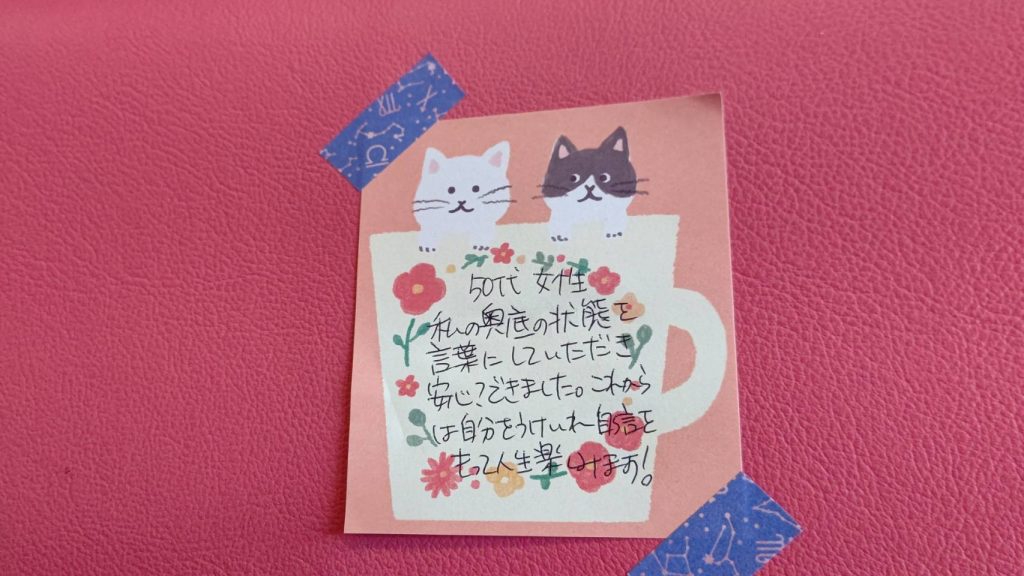 50代 女性
私の奥底の状態を
言葉にしていただき
安心できました。これから
は自分をうけいれ自信を
もって人生楽しみます!